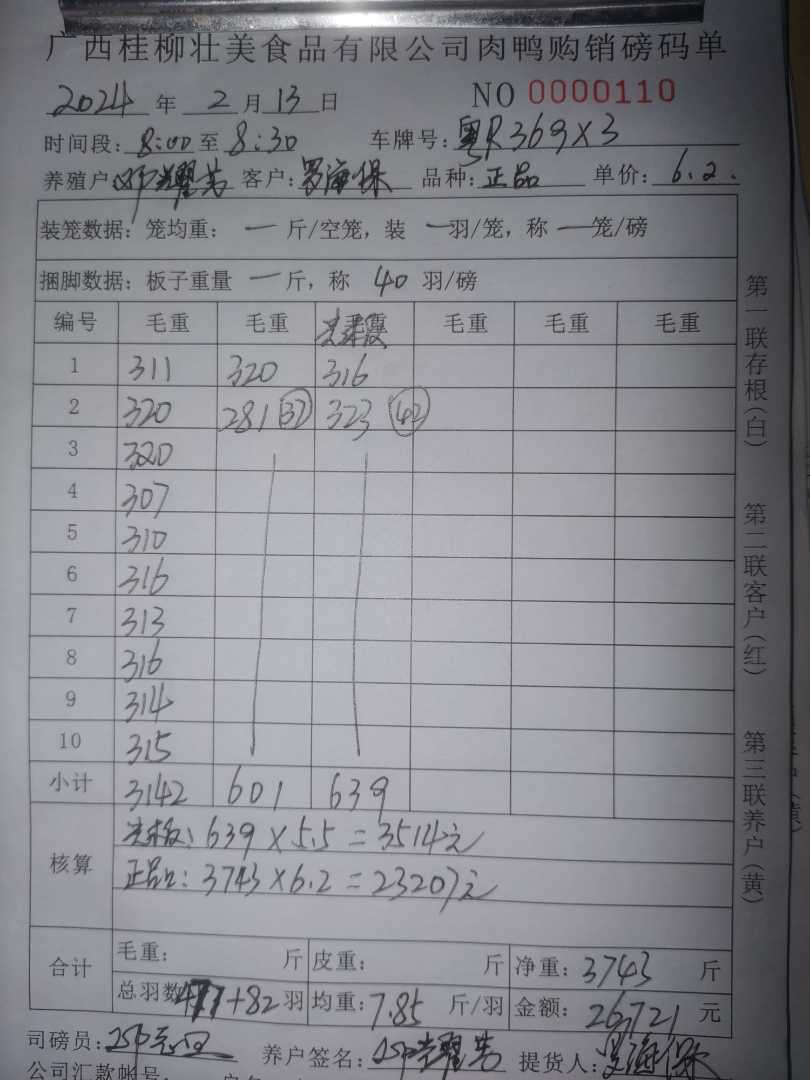 广西桂柳壮美食品有限公司肉鸭购销磅码单
2024 年 2 月 13 日 NO 0000110
时间段: 8:00 至 8:30 车牌号: 粤R369X3
养殖户 邓耀芳 客户: 罗海保 品种: 正品 单价: 6.2.
装笼数据: 笼均重: 一 斤/空笼, 装 一 羽/笼, 称 一 笼/磅
捆脚数据: 板子重量 一 斤, 称 40 羽/磅
编号 毛重 毛重 毛重 毛重 毛重
1 311 320 316
2 320 281 (37) 323 (42)
3 320
4 307
5 310
6 316
7 313
8 316
9 314
10 315
小计 3142 601 639
核算
639 X 5.5 = 3514元
正品: 3743 X 6.2 = 23207元
合计 毛重: 斤 皮重: 斤 净重: 3743 斤
总羽数 477+82 羽 均重: 7.85 斤/羽 金额: 26,721 元
司磅员: 养户签名: 邓耀芳 提货人: 罗海保
公司汇款帐号:
第一联存根(白)
第二联客户(红)
第三联养户(黄)